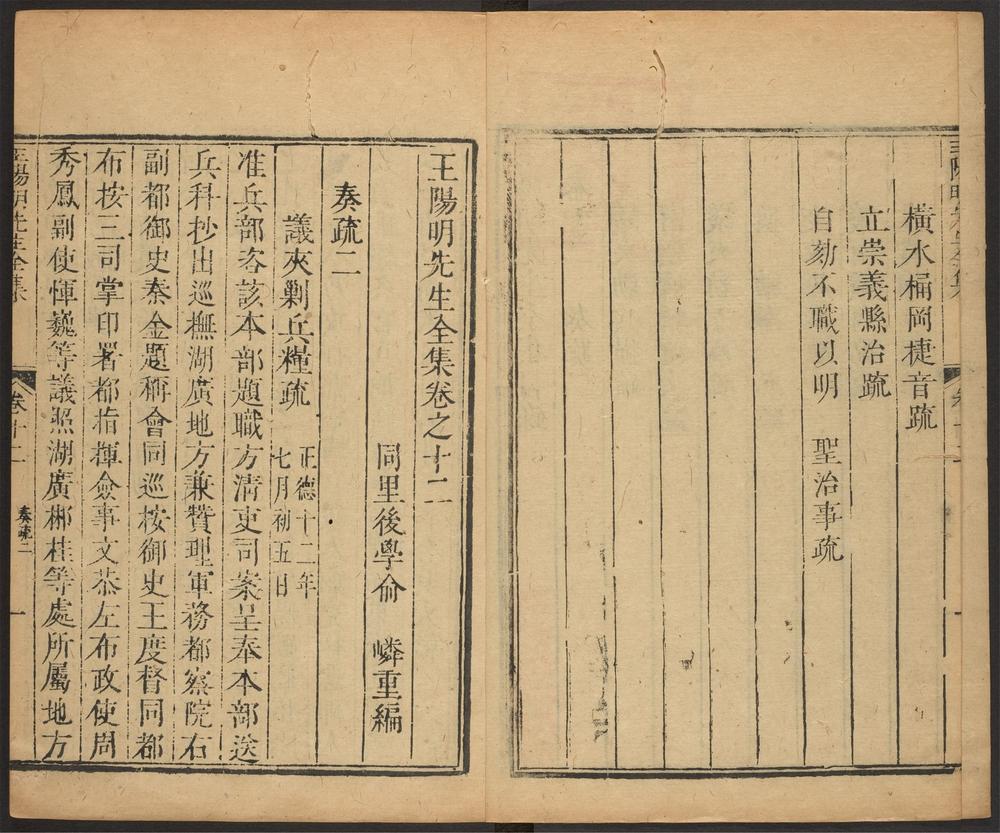 橫水桶岡捷音疏
立崇義縣治疏
自劾不職以明　聖治事疏
王陽明先生全集卷之十二
同里後學俞　嶙重編
奏疏二
議夾剿兵糧疏
正德十二年
七月初五日
准兵部咨該本部題職方清吏司案呈奉本部送
兵科抄出巡撫湖廣地方兼贊理軍務都察院右
副都御史秦金題稱會同巡按御史王度督同都
布按三司掌印署都指揮僉事文恭左布政使周
季鳳副使惲巍等議照湖廣郴桂等處所屬地方
王陽明先生全集
卷十二
奏疏二
一